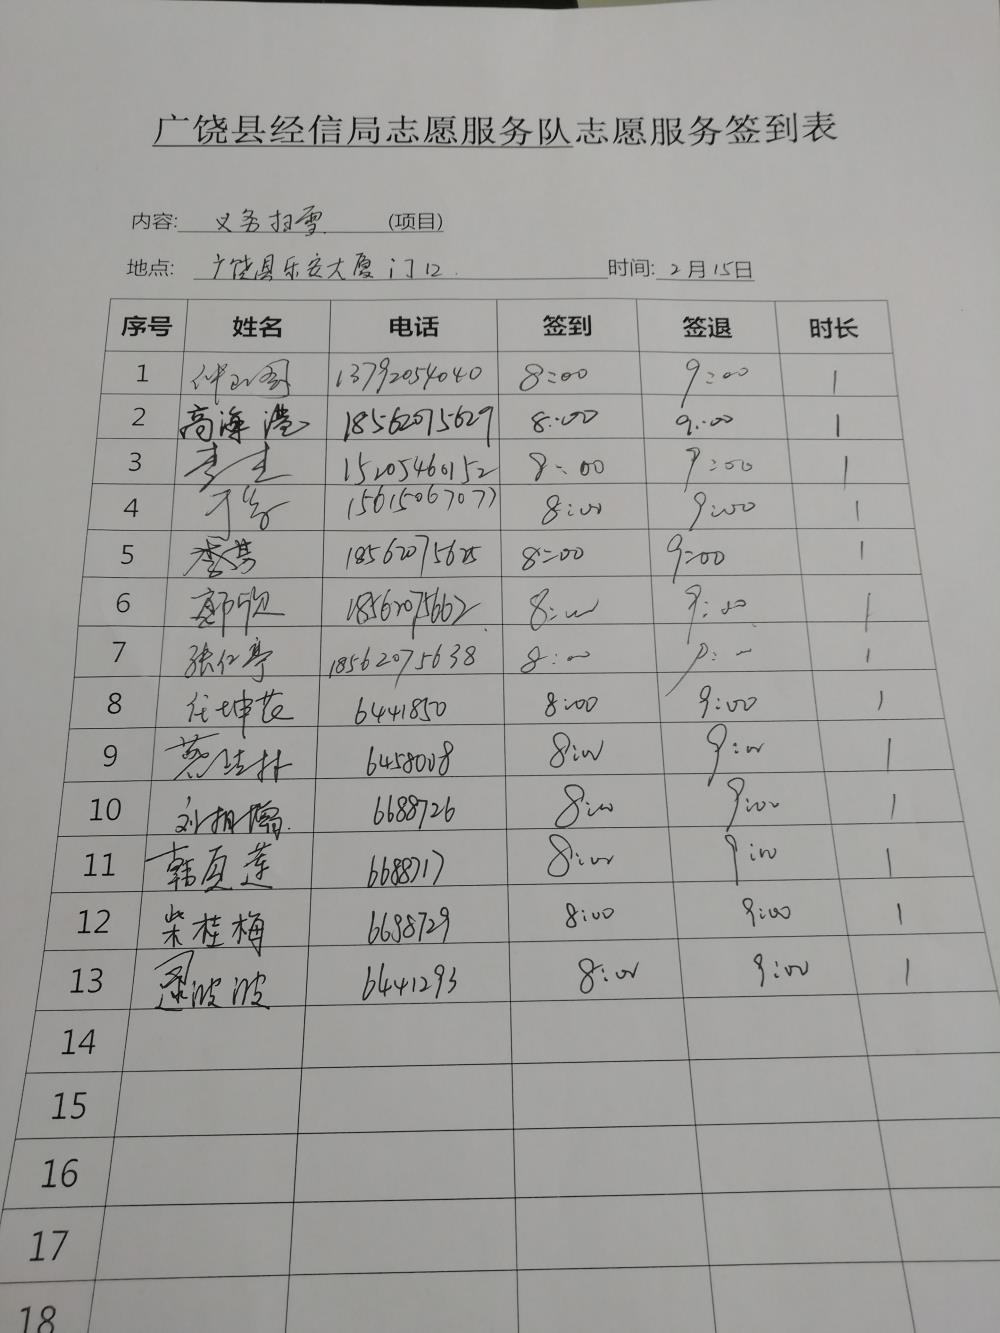 广饶县经信局志愿服务队志愿服务签到表
内容: 义务扫雪 (项目)
地点: 广饶县乐安大厦门口 时间: 2月15日
序号 姓名 电话 签到 签退 时长
1 13792054040 8:00 9:00 1
2 高海港 18562075629 8:00 9:00 1
3 15205460152 8:00 9:00 1
4 15615067077 8:00 9:00 1
5 李其 18562075625 8:00 9:00 1
6 郭欣 18562075662 8:00 9:00 1
7 张仁亭 18562075638 8:00 9:00 1
8 任坤花 6441850 8:00 9:00 1
9 6458008 8:00 9:00 1
10 刘相 6688726 8:00 9:00 1
11 韩夏莲 6688717 8:00 9:00 1
12 柴桂梅 6688729 8:00 9:00 1
13 波波 6441293 8:00 9:00 1
14
15
16
17
18